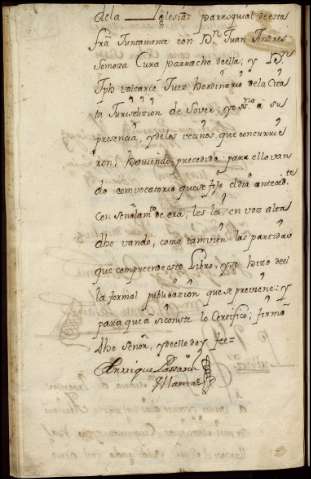 dela Iglesia parroquial de esta
fra Juntamente con Dn. Juan Andres
Somoza Cura parrocho de ella, y Dn.
Jph valcarce Juez hordinario dela Cita
ta Jurisdizion de Sover, y su a su
presencia, y de los vecinos que concurrie
ron, haviendo precedido para ello van
do convocatorio que se fijo el dia anteced.te
Con señalamto de ora, les lei en voz alta
dho vando, como tamvien las partidas
que comprende este Libro, y se hizo de el
la formal publicazion que se previene; y
para que asi conste lo Certifico, firmo
dho Señor, y de ello doy fee=
Enrique